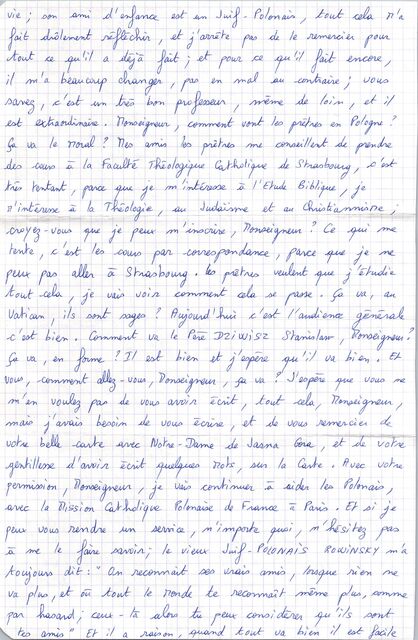 vie ; son ami d'enfance est un Juif-Polonais, tout cela m'a
fait drôlement réfléchir, et j'arrête pas de le remercier pour
tout ce qu'il a déjà fait ; et pour ce qu'il fait encore,
il m'a beaucoup changer, pas en mal au contraire ; vous
savez, c'est un très bon professeur, même de loin, et il
est extraordinaire. Monseigneur, comment vont les prêtres en Pologne ?
Ça va le moral ? Mes amis les prêtres me conseillent de prendre
des cours à la Faculté Théologique Catholique de Strasbourg, c'est
très tentant, parce que je m'intéresse à l'Etude Biblique, je
m'intéresse à la Théologie, au Judaïsme et au Christianisme ;
croyez-vous que je peux m'inscrire, Monseigneur ? Ce qui me
tente, c'est les cours par correspondance, parce que je ne
peux pas aller à Strasbourg. Les prêtres veulent que j'étudie
tout cela, je vais voir comment cela se passe. Ça va, au
Vatican, ils sont sages ? Aujourd'hui c'est l'audience générale
c'est bien. Comment va le Père DZIWISZ Stanislaw, Monseigneur ?
Ça va, en forme ? Il est bien et j'espère qu'il va bien. Et
vous, comment allez-vous, Monseigneur, ça va ? J'espère que vous ne
m'en voulez pas de vous avoir écrit, tout cela, Monseigneur,
mais j'avais besoin de vous écrire, et de vous remercier de
votre belle carte avec Notre-Dame de Jasna Gora, et de votre
gentillesse d'avoir écrit quelques mots, sur la Carte. Avec votre
permission, Monseigneur, je vais continuer à aider les Polonais,
avec la Mission Catholique Polonaise de France à Paris. Et si je
peux vous rendre un service, n'importe quoi, n'hésitez pas
à me le faire savoir ; le vieux Juif-POLONAIS ROWINSKY m'a
toujours dit : " On reconnaît ses vrais amis, lorsque rien ne
va plus, et où tout le monde te reconnaît même plus, comme
par hasard ; ceux-là alors tu peux considérer qu'ils sont
tes amis" Et il a raison, quand tout va bien il est facile